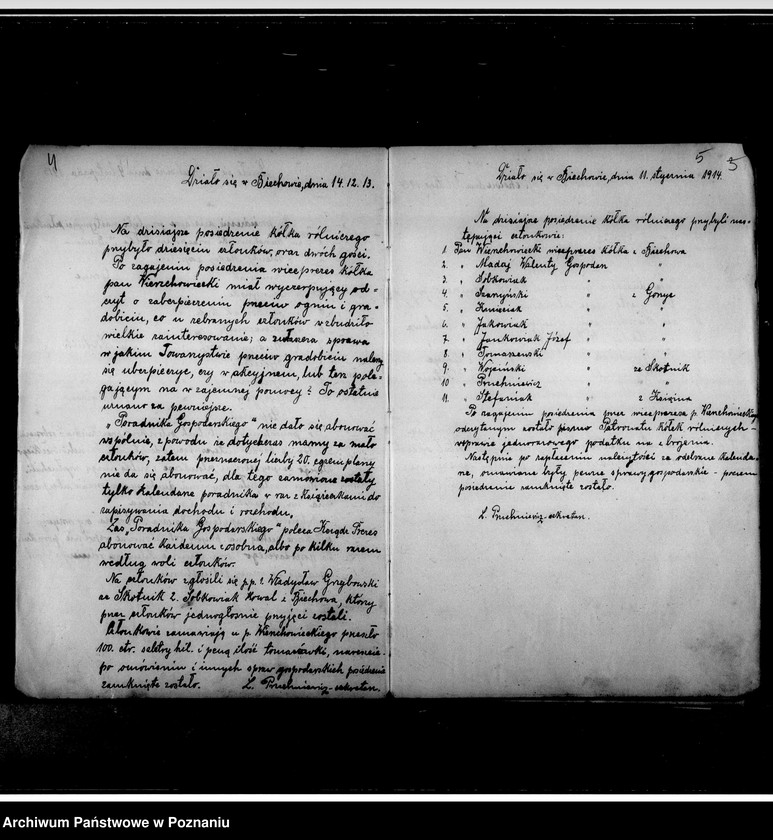 4
Działo się w Biechowie, dnia 14. 12. 13.
Na dzisiajsze posiedzenie kółka rólniczego
przybyło dziesięciu członków, oraz dwóch gości.
Po zagajeniu posiedzenia wiceprezes kółka
pan Wierzchowiecki miał wyczerpujący od-
czyt o zabezpieczeniu przeciw ogniu i gra-
dobiciu, co u zebranych członków wzbudziło
wielkie zainteresowanie; a zwłaszcza sprawa
w jakim Towarzystwie przeciw gradobiciu należy
się uberpieczyć, czy w akcyjnem, lub ten pole-
gającym na wzajemnej pomocy? To ostatnie
uznano za pewniejsze.
„Poradnika Gospodarskiego" nie dało się abonować
wspólnie, z powodu że dotychczas mamy za mało
członków, zatem przeznaczonej liczby 20. egzemplarzy
nie da się abonować, dla tego zamówione zostały
tylko kalendarze poradnika w raz z książeczkami do
zapisywania dochodu i rozchodu.
Zaś „Poradnika Gospodarskiego" poleca Ksiądz Prezes
abonować każdemu z osobna, albo po kilku razem
według woli członków.
Na członków zgłosili się p.p. 1. Władysław Grzybowski
ze Skotnik 2. Sobkowiak Kowal z Biechowa, którzy
przez członków jednogłośnie przyjęci zostali.
Członkowie zamawiają u p. Wierzchowieckiego przeszło
100. ctr. saletry hil. i pewną ilość tomasówki, nareszcie
po omówieniu i innych spraw gospodarskich posiedzenie
zamknięte zostało. L. Pruchniewicz - sekretarz.
5
3
Działo się w Biechowie, dnia 11. stycznia 1914.
Na dzisiajsze posiedzenie kółka rólniczego przybyli nas-
tępujący członkowie:
1. Pan Wierzchowiecki wiceprezes kółka z Biechowa
2. „ Madaj Walenty Gospodarz „
3. „ Sobkowiak „ „
4. „ Szarzyński „ z Gonyc
5. „ „ „
6. „ Jakowiak „ „
7. „ Jankowiak Józef „ „
8. „ Tomaszewski „ „
9. „ Wojciński „ ze Skotnik
10 „ Pruchniewicz „ „
11. „ Stefaniak „ z Książna
Po zagajeniu posiedzenia przez wiceprezesa p. Wierzchowieckiego
odczytanym zostało pismo Patronatu Kółek rólniczych -
w sprawie jednorazowego podatku na zbrojenia.
Następnie po zapłaceniu należytości za odebrane kalenda-
rze, omawiane były pewne sprawy gospodarskie - poczem
posiedzenie zamknięte zostało.
L. Pruchniewicz - sekretarz.
Archiwum Państwowe w Poznaniu